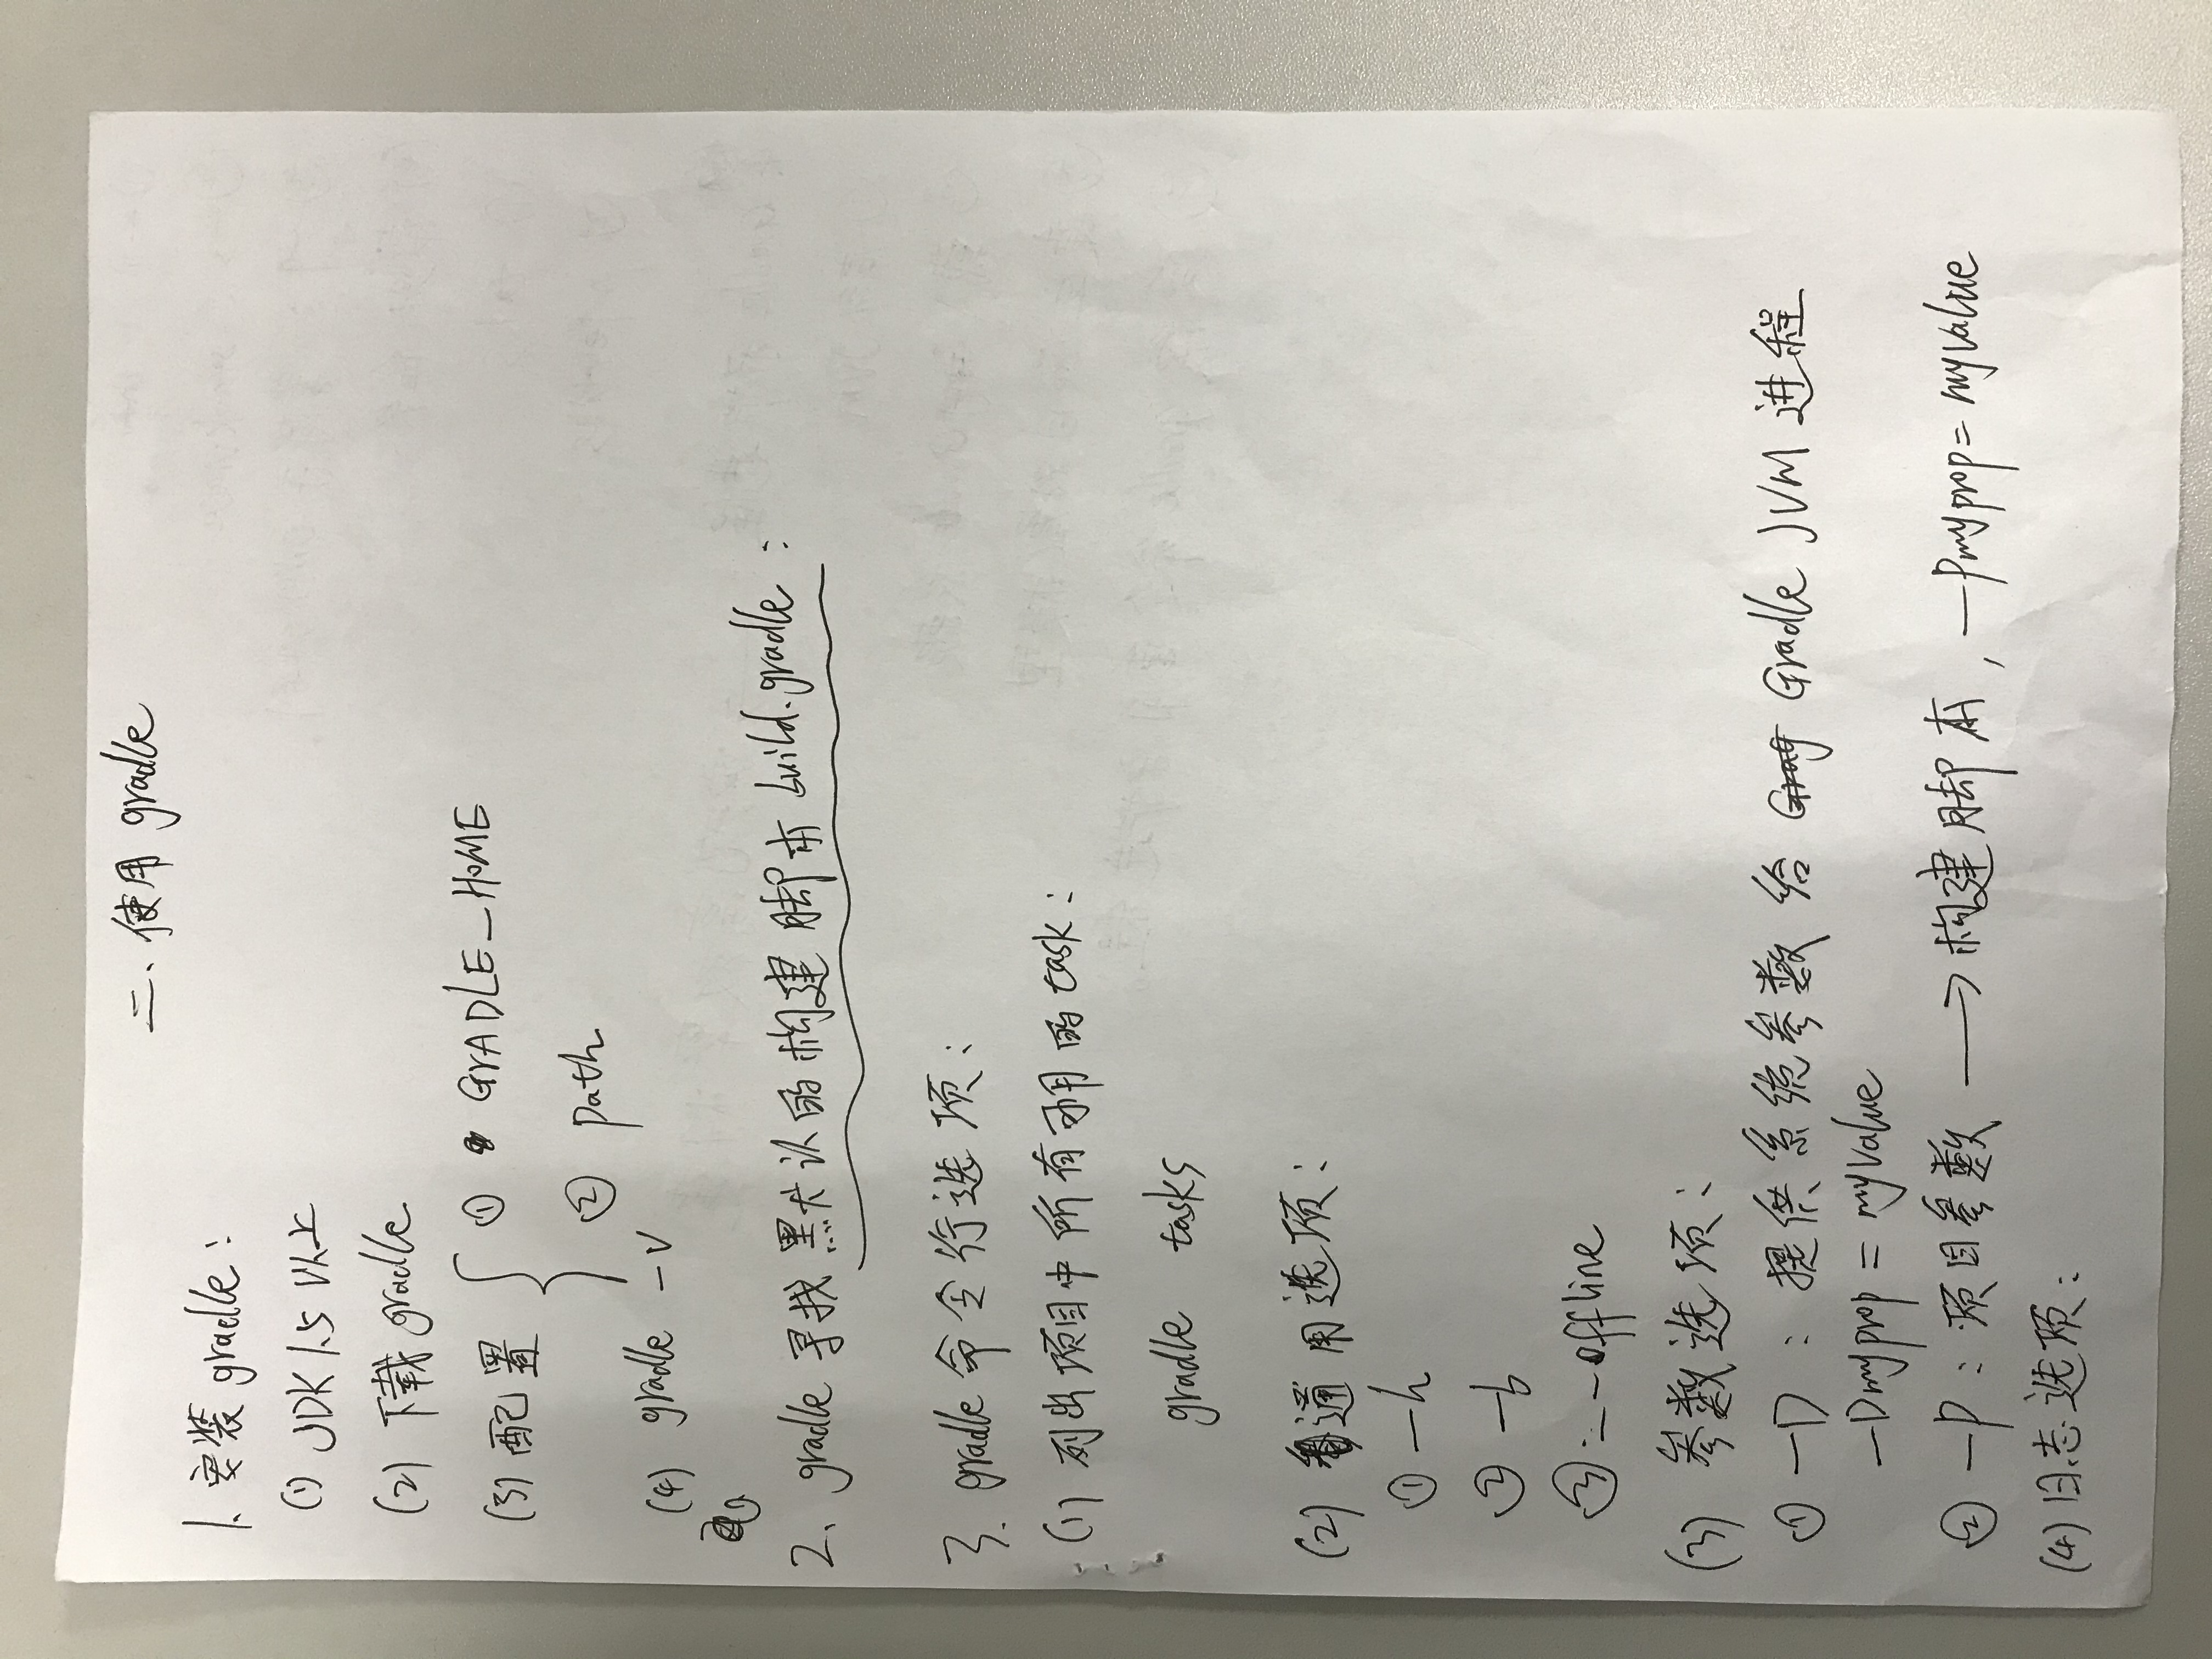 二、使用 gradle
1. 安装 gradle：
(1) JDK 1.5 以上
(2) 下载 gradle
(3) 配置 { ① GRADLE_HOME
② path
(4) gradle -v
2、gradle 寻找默认的构建脚本 build.gradle：
3. gradle 命令行选项：
(1) 列出项目中所有可用的 task：
gradle tasks
(2) 通用选项：
① -h
② -b
③ --offline
(3) 参数选项：
① -D：提供系统参数给 Gradle JVM 进程
-Dmyprop = myvalue
② -P：项目参数 → 构建脚本，-Pmyprop = myvalue
(4) 日志选项：